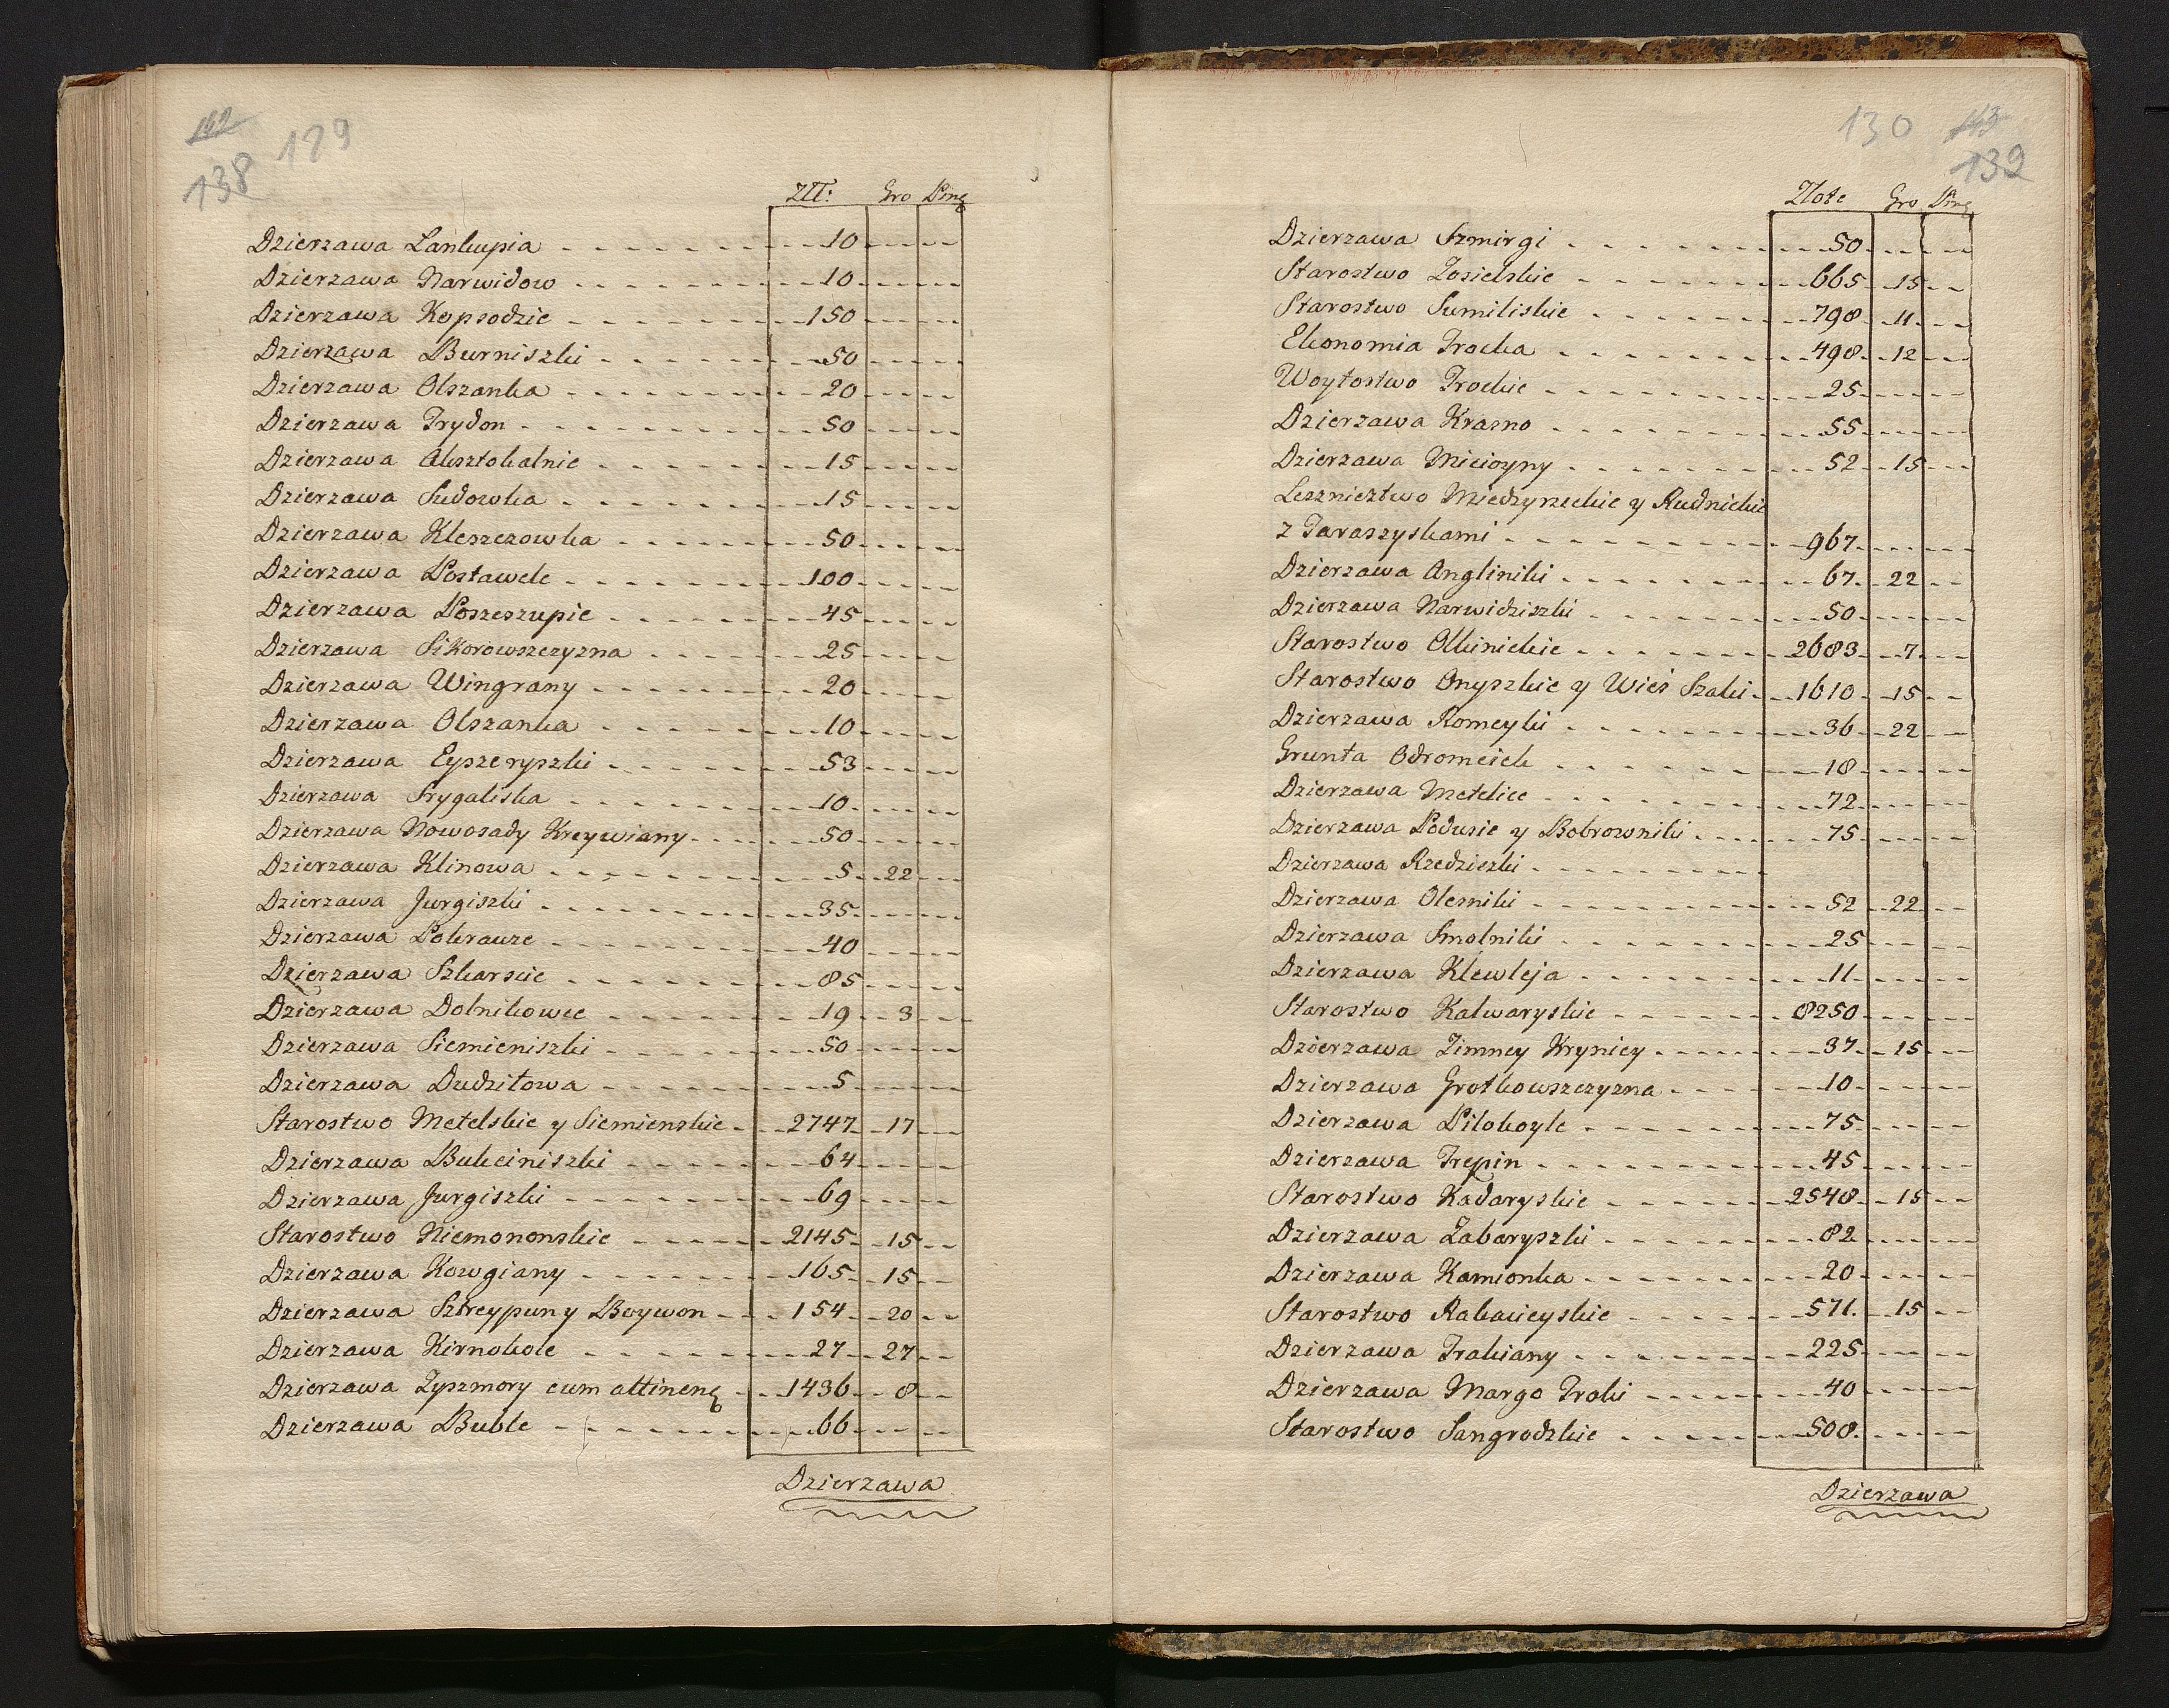 138 129
Złł: Gro Pieng
Dzierzawa Lankupia 10
Dzierzawa Narwidow 10
Dzierzawa Kopsodzie 150
Dzierzawa Burniszki 50
Dzierzawa Olszanka 20
Dzierzawa Trydon 50
Dzierzawa Aksztokalnie 15
Dzierzawa Sudowka 15
Dzierzawa Kleszczowka 50
Dzierzawa Postawele 100
Dzierzawa Poszeszupie 45
Dzierzawa Sikorowszczyzna 25
Dzierzawa Wingrany 20
Dzierzawa Olszanka 10
Dzierzawa Eyszeryszki 53
Dzierzawa Frygaliska 10
Dzierzawa Nowosady Kreywiany 50
Dzierzawa Klinowa 5 22
Dzierzawa Jurgiszki 35
Dzierzawa Pokrauze 40
Dzierzawa Szkarscie 85
Dzierzawa Dolnikowce 19 3
Dzierzawa Siemieniszki 50
Dzierzawa Dudzitowa 5
Starostwo Metelskie y Siemienskie 2747 17
Dzierzawa Bukciniszki 64
Dzierzawa Jurgiszki 69
Starostwo Niemononskie 2145 15
Dzierzawa Kowgiany 165 15
Dzierzawa Sztreypuny Boywon 154 20
Dzierzawa Kirnokole 27 27
Dzierzawa Zyszmory cum attinen 1436 8
Dzierzawa Buble 66
Dzierzawa
130 143
139
Zlote Gro Pieng
Dzierzawa Szmirgi 50
Starostwo Zosielskie 665 15
Starostwo Sumiliskie 798 11
Ekonomia Trocka 498 12
Woytostwo Trockie 25
Dzierzawa Krasno 55
Dzierzawa Micioyny 52 15
Lesznictwo Miedzyrzeckie y Rudnickie
z Taraszyskami 967
Dzierzawa Angliniki 67 22
Dzierzawa Narwidziszki 50
Starostwo Olkinickie 2683 7
Starostwo Onyszkie y Wieś Szaki 1610 15
Dzierzawa Romeyki 36 22
Grunta Odromeick 18
Dzierzawa Metelice 72
Dzierzawa Podusie y Bobrowniki 75
Dzierzawa Rzedziszki
Dzierzawa Olesniki 52 22
Dzierzawa Smolniki 25
Dzierzawa Klewleja 11
Starostwo Kalwaryskie 8250
Dzierzawa Zimney Krynicy 37 15
Dzierzawa Grotkowszczyzna 10
Dzierzawa Pilokoyle 75
Dzierzawa Trepin 45
Starostwo Kadaryskie 2548 15
Dzierzawa Zabaryszki 82
Dzierzawa Kamionka 20
Starostwo Rakacieyskie 571 15
Dzierzawa Trakiany 225
Dzierzawa Margo Troki 40
Starostwo Sangrodzkie 508
Dzierzawa